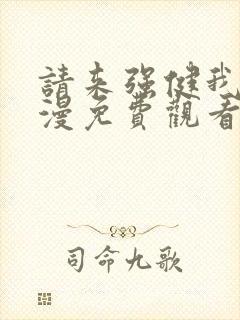 請来强健我
漫免費觀看
司命九歌